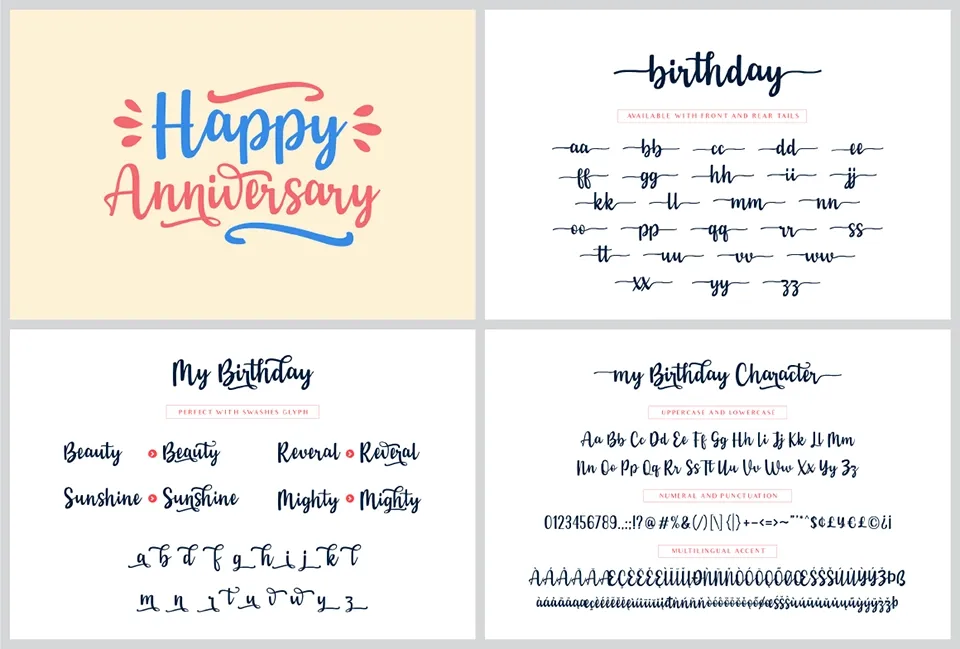 Happy
Anniversary
birthday
AVAILABLE WITH FRONT AND REAR TAILS
aa bb cc dd ee
ff gg hh ii jj
kk ll mm nn
oo pp qq rr ss
tt uu vv ww
xx yy zz
My Birthday
PERFECT WITH SWASHES GLYPH
Beauty Beauty Reveral Reveral
Sunshine Sunshine Mighty Mighty
a b d f g h i j k l
m n r t u v w y z
my Birthday Character
UPPERCASE AND LOWERCASE
Aa Bb Cc Dd Ee Ff Gg Hh Ii Jj Kk Ll Mm
Nn Oo Pp Qq Rr Ss Tt Uu Vv Ww Xx Yy Zz
NUMERAL AND PUNCTUATION
0123456789
MULTILINGUAL ACCENT